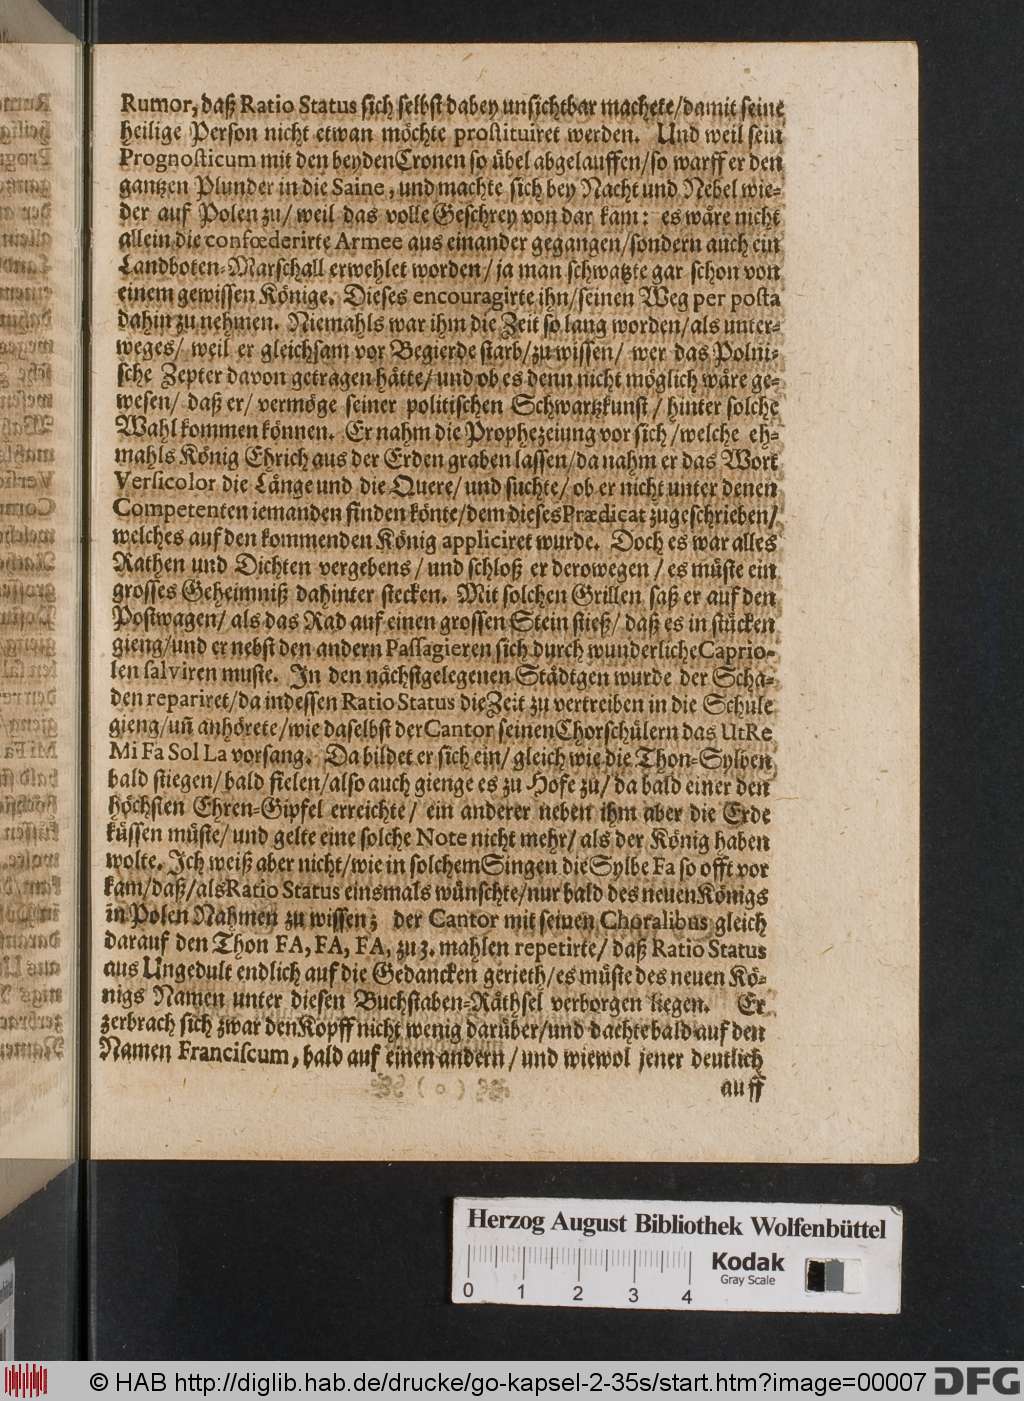 Rumor, daß Ratio Status sich selbst dabey unsichtbar machete/damit seine
heilige Person nicht etwan möchte prostituiret werden. Und weil sein
Prognosticum mit den beyden Cronen so übel abgelauffen/so warff er den
gantzen Plunder in die Saine, und machte sich bey Nacht und Nebel wie-
der auf Polen zu/ weil das volle Geschrey von dar kam: es wäre nicht
allein die confœderirte Armee aus einander gegangen/sondern auch ein
Landboten-Marschall erwehlet worden/ ja man schwatzte gar schon von
einem gewissen Könige. Dieses encouragirte ihn/seinen Weg per posta
dahin zu nehmen. Niemahls war ihm die Zeit so lang worden/als unter-
weges/ weil er gleichsam vor Begierde starb/zu wissen/ wer das Polni-
sche Zepter davon getragen hätte/ und ob es denn nicht möglich wäre ge-
wesen/ daß er/ vermöge seiner politischen Schwartzkunst/ hinter solche
Wahl kommen können. Er nahm die Prophezeiung vor sich/welche eh-
mahls König Ehrich aus der Erden graben lassen/da nahm er das Wort
Versicolor die Länge und die Quere/ und suchte/ ob er nicht unter denen
Competenten iemanden finden könte/dem dieses Prædicat zugeschrieben/
welches auf den kommenden König appliciret wurde. Doch es war alles
Rathen und Dichten vergebens/ und schloß er derowegen/ es müste ein
grosses Geheimniß dahinter stecken. Mit solchen Grillen saß er auf den
Postwagen/ als das Rad auf einen grossen Stein stieß/ daß es in stücken
gieng/und er nebst den andern Passagieren sich durch wunderliche Caprio-
len salviren muste. In den nächstgelegenen Städtgen wurde der Scha-
den repariret/da indessen Ratio Status die Zeit zu vertreiben in die Schule
gieng/uñ anhörete/wie daselbst der Cantor seinen Chorschülern das Ut Re
Mi Fa Sol La vorsang. Da bildet er sich ein/ gleich wie die Thon-Sylben
bald stiegen/bald fielen/also auch gienge es zu Hofe zu/ da bald einer den
höchsten Ehren-Gipfel erreichte/ ein anderer neben ihm aber die Erde
küssen müste/ und gelte eine solche Note nicht mehr/ als der König haben
wolte. Ich weiß aber nicht/wie in solchem Singen die Sylbe Fa so offt vor
kam/daß/als Ratio Status einsmals wünschte/nur bald des neuen Königs
in Polen Nahmen zu wissen; der Cantor mit seinen Choralibus gleich
darauf den Thon FA, FA, FA, zu 3. mahlen repetirte/ daß Ratio Status
aus Ungedult endlich auf die Gedancken gerieth/es müste des neuen Kö-
nigs Namen unter diesen Buchstaben-Räthsel verborgen liegen. Er
zerbrach sich zwar den Kopff nicht wenig darüber/und dachte bald auf den
Namen Franciscum, bald auf einen andern/ und wiewol jener deutlich
auff
Herzog August Bibliothek Wolfenbüttel
Kodak
Gray Scale
0 1 2 3 4
© HAB http://diglib.hab.de/drucke/go-kapsel-2-35s/start.htm?image=00007 DFG